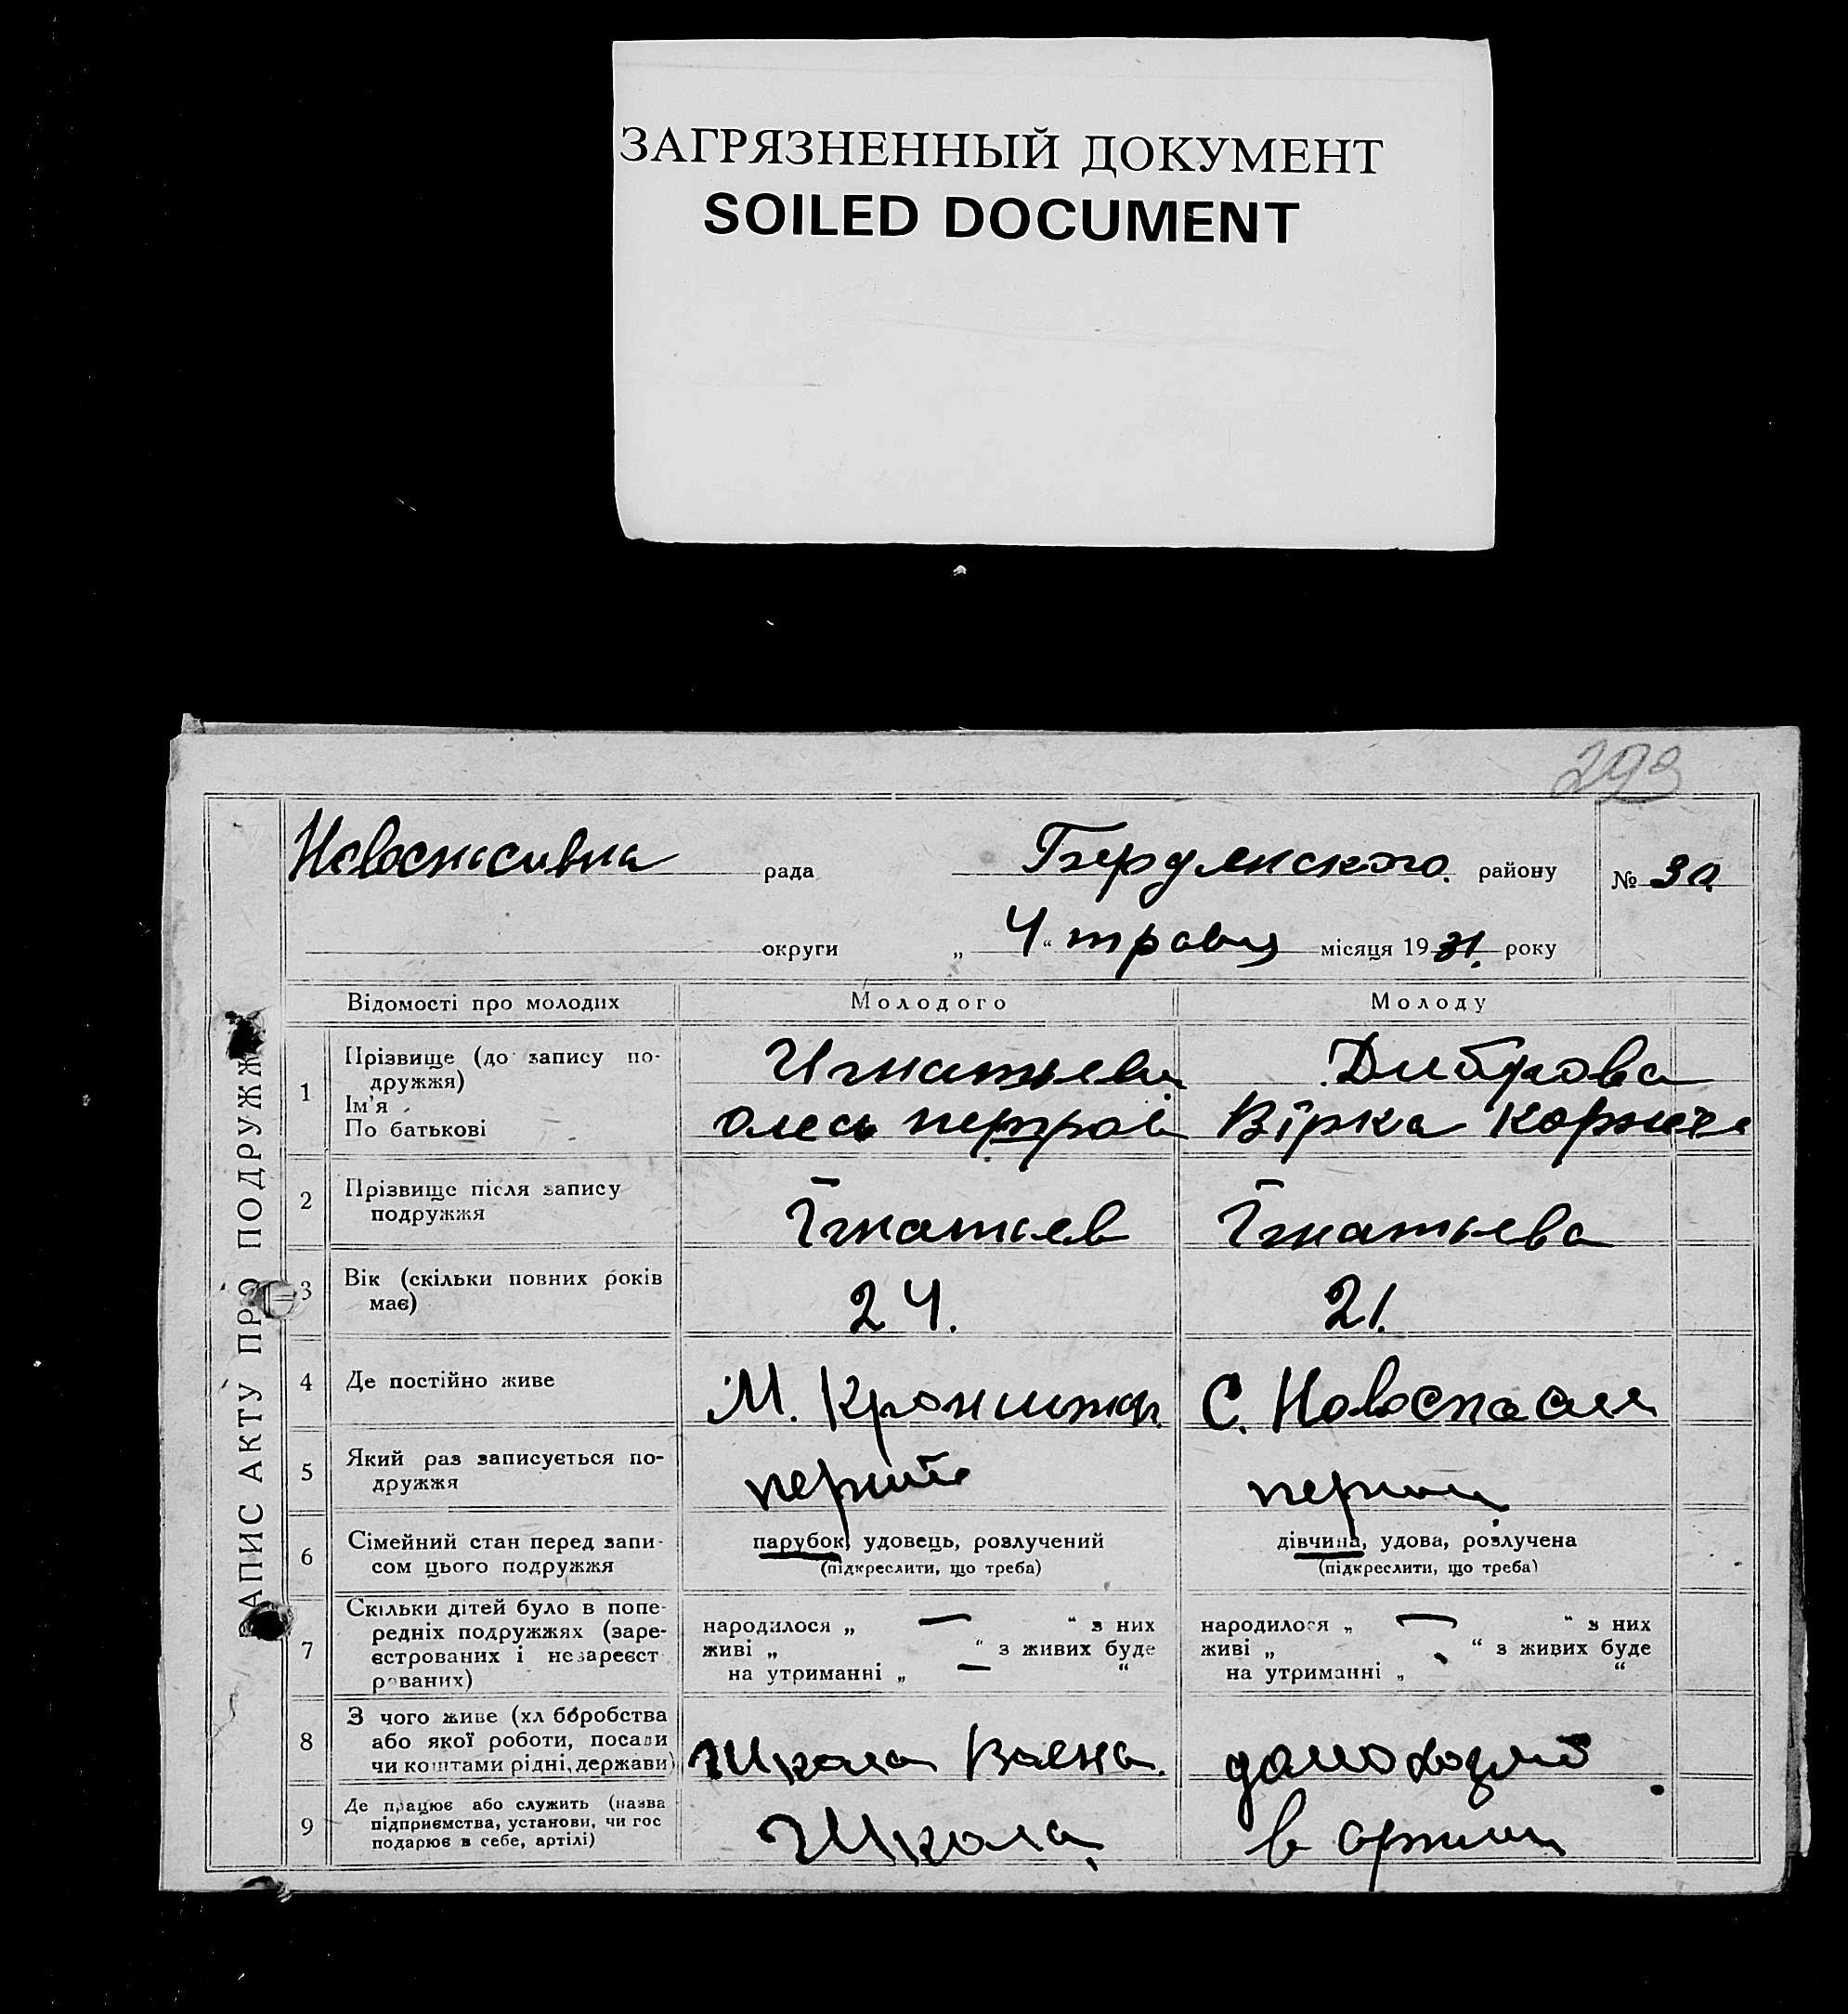 ЗАГРЯЗНЕННЫЙ ДОКУМЕНТ
SOILED DOCUMENT
293
Новоспасивка рада Бердянского району № 30
округи „ 4 “ травня місяця 19 31. року
АПИС АКТУ ПРО ПОДРУЖЖ
Відомості про молодих Молодого Молоду
1 Прізвище (до запису по-
дружжя)
Ім'я
По батькові
Игнатьев Диброва
Олесь Петров Вірка
2 Прізвище після запису
подружжя
Ігнатьев Ігнатьева
3 Вік (скільки повних років
має)
24. 21.
4 Де постійно живе
М. С.
5 Який раз записується по-
дружжя
перший
6 Сімейний стан перед запи-
сом цього подружжя
парубок, удовець, розлучений
(підкреслити, що треба)
дівчина, удова, розлучена
(підкреслити, що треба)
7 Скільки дітей було в попе-
редніх подружжях (заре-
єстрованих і незареєст
рованих)
народилося „ — “ з них
живі „ “ з живих буде
на утриманні „ — “
народилося „ — “ з них
живі „ “ з живих буде
на утриманні „ “
8 З чого живе (хліборобства
або якої роботи, посади
чи коштами рідні, держави)
Школа Воена.
9 Де працює або служить (назва
підприємства, установи, чи гос
подарює в себе, артілі)
Школа в